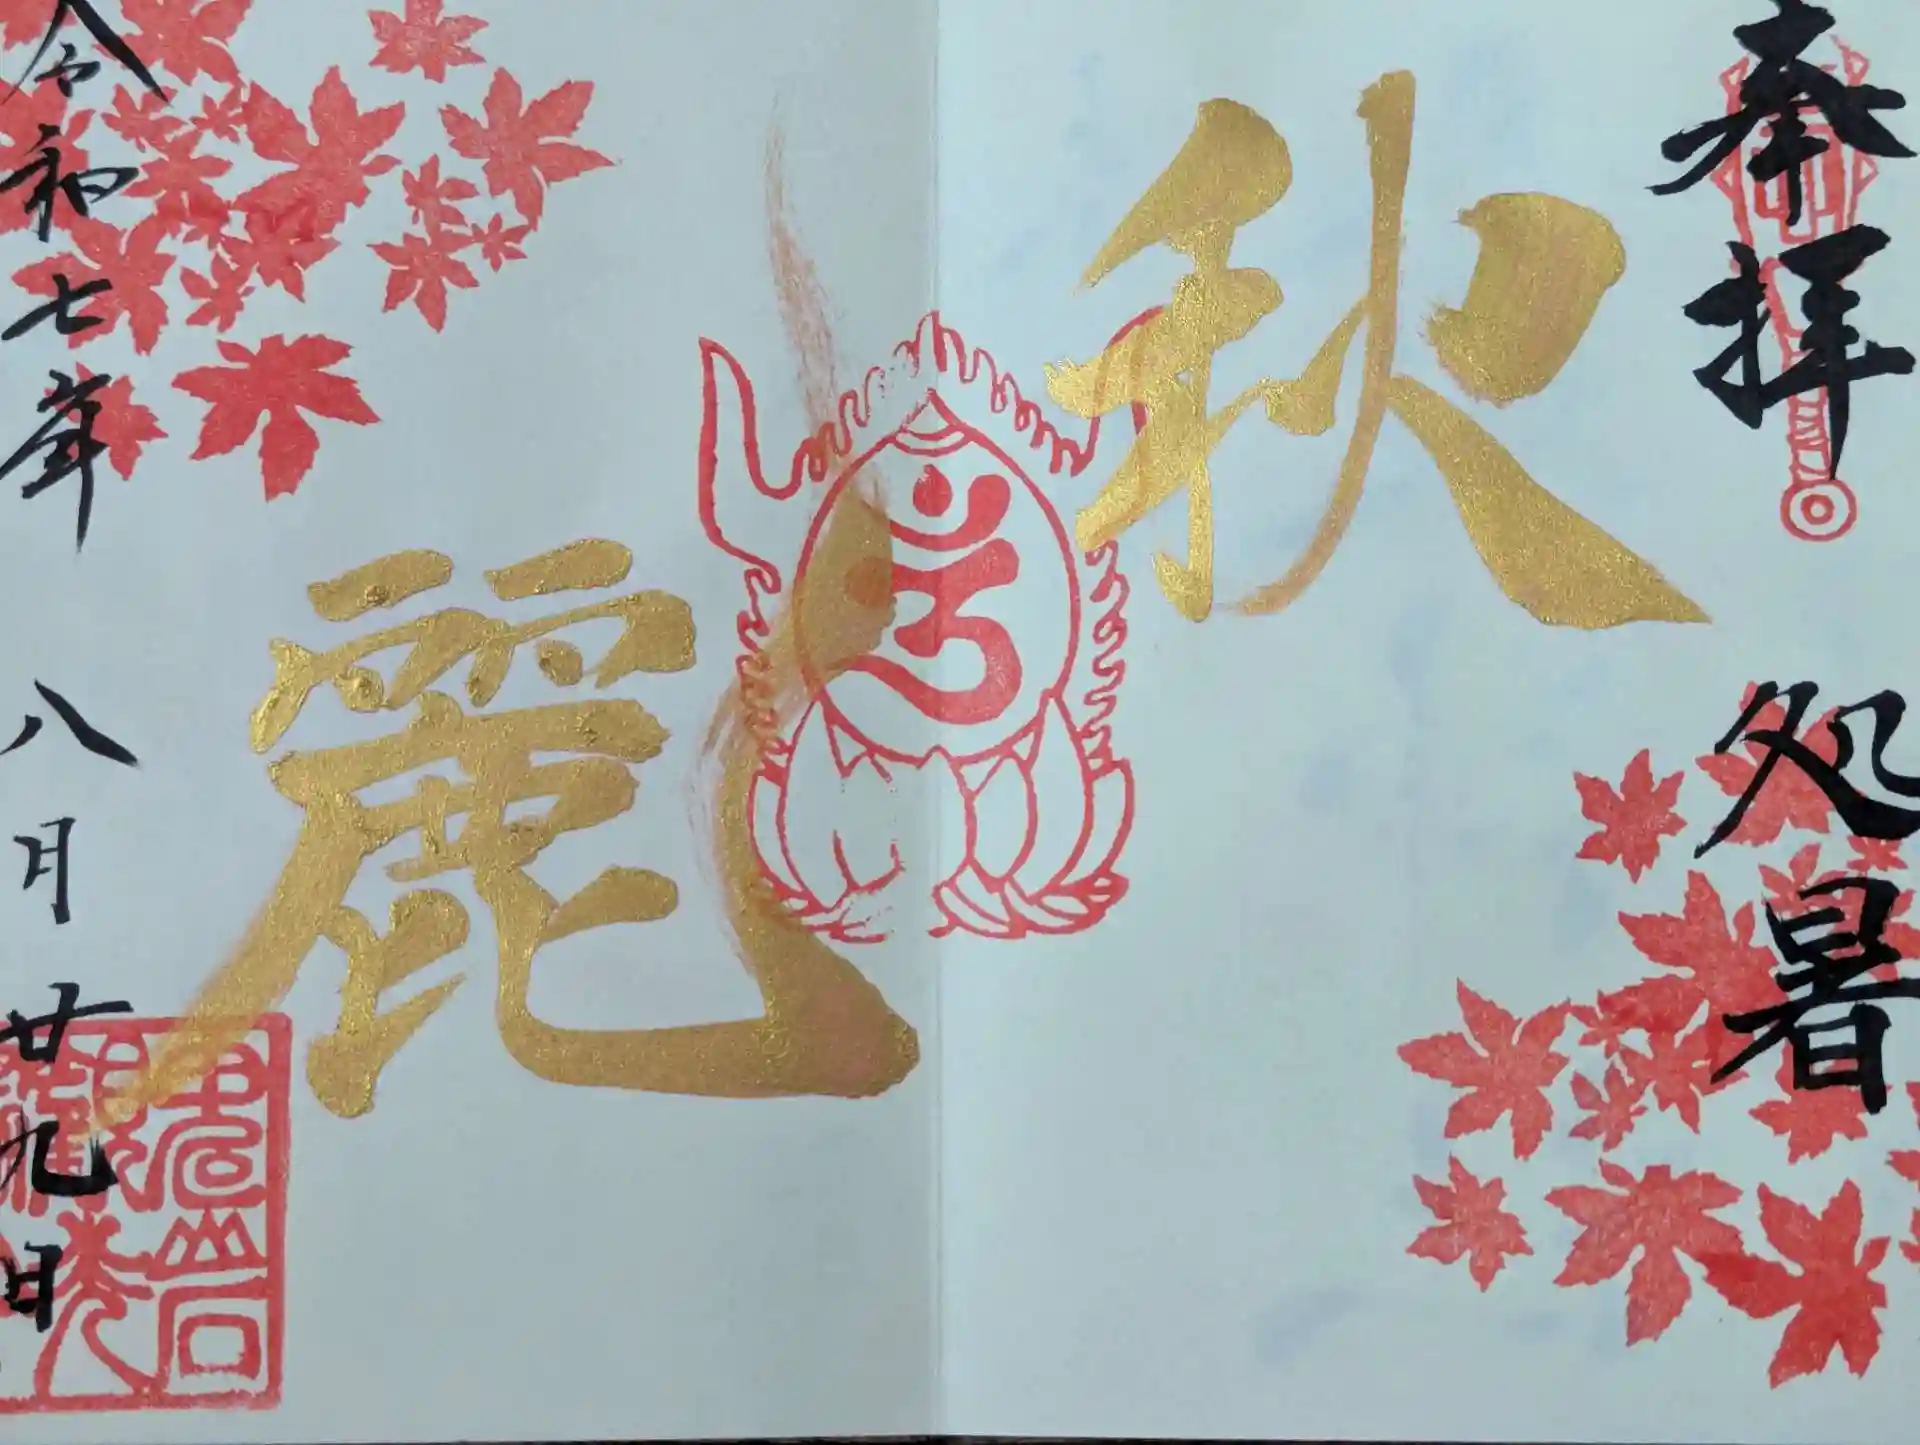 奉拝
処暑
秋
麗
令和七年 八月廿九日